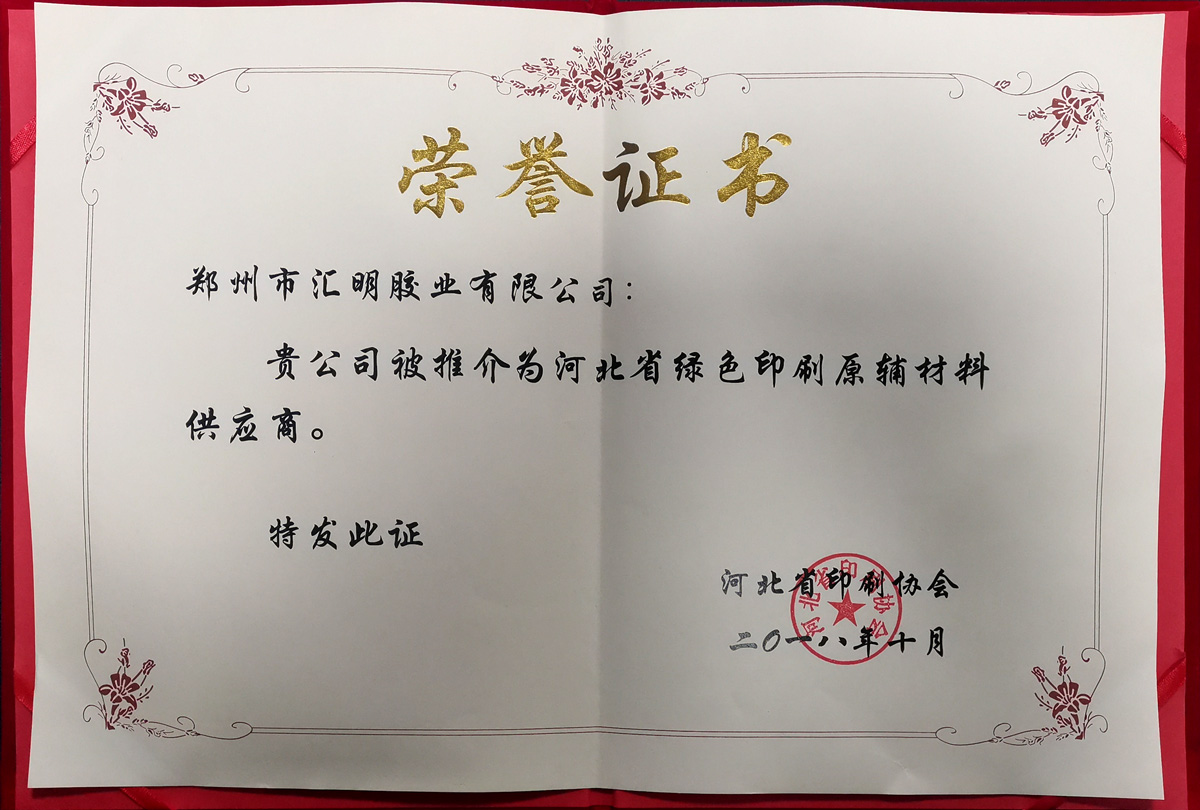 荣誉证书
郑州市汇明胶业有限公司：
贵公司被推介为河北省绿色印刷原辅材料
供应商。
特发此证
河北省印刷协会
二〇一八年十月
河北省印刷协会